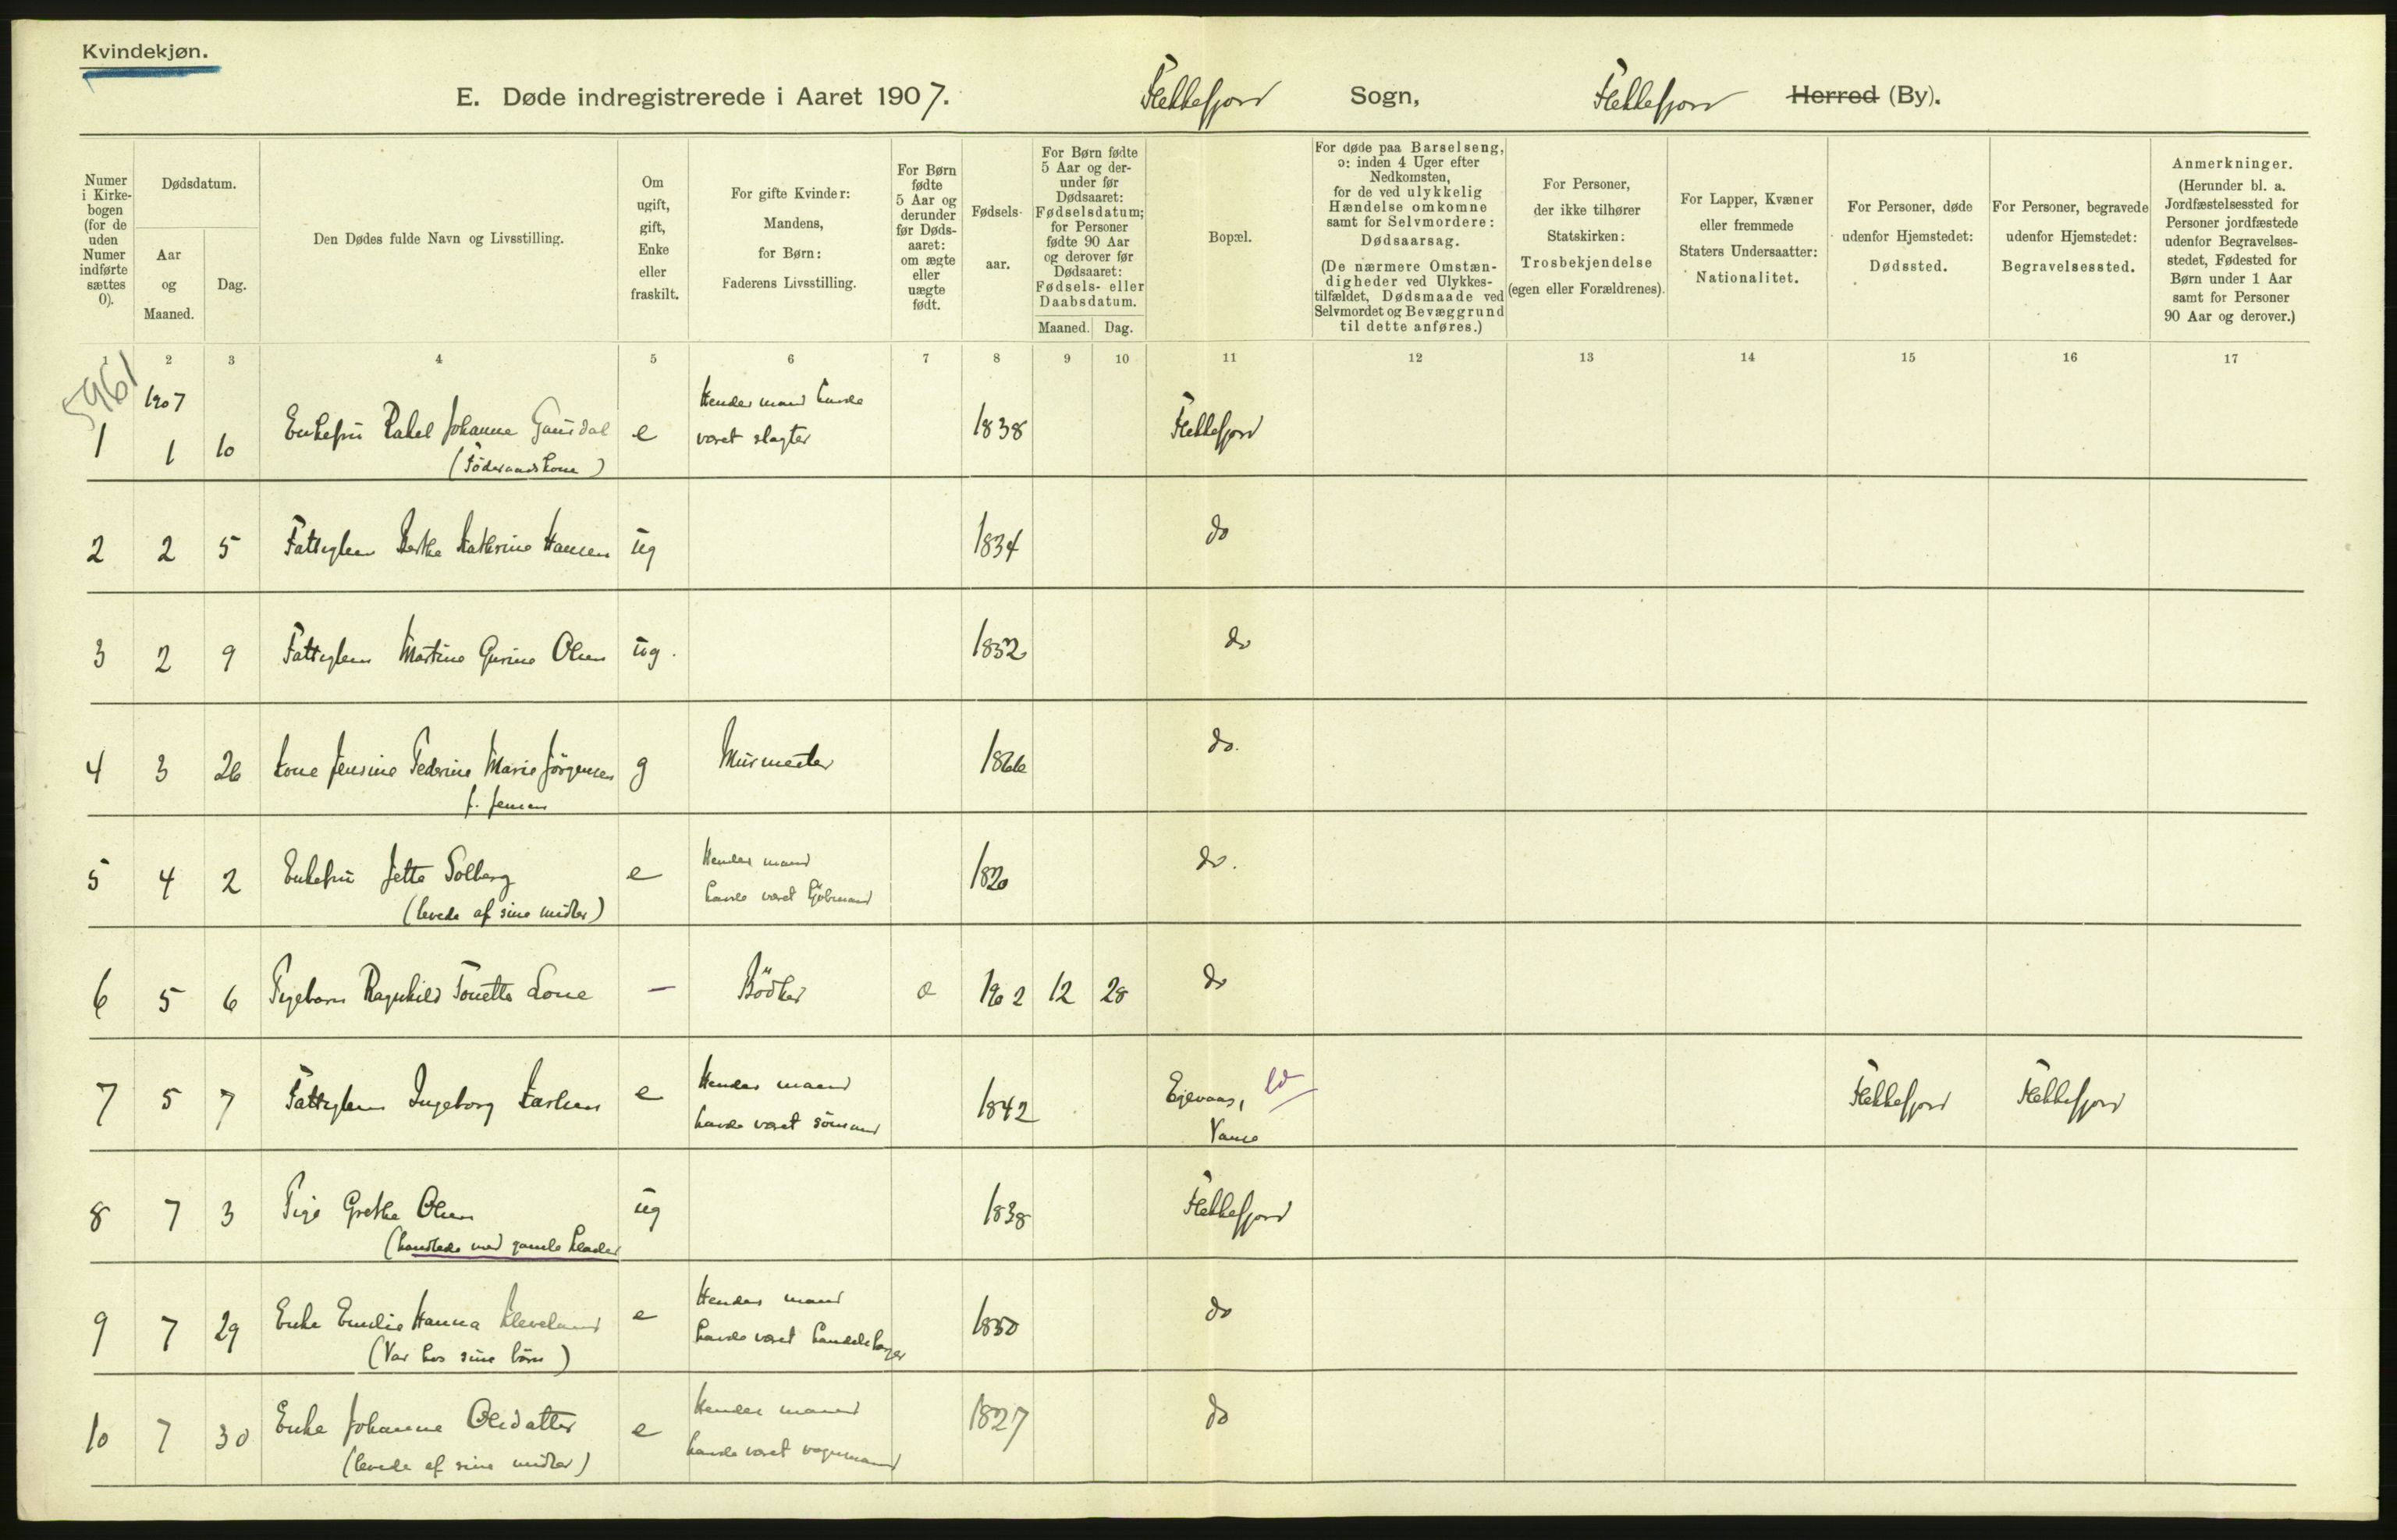 Kvindekjøn.
E. Døde indregistrerede i Aaret 1907. Flekkefjord Sogn, Flekkefjord Herred (By).
Numer i Kirkebogen (for de uden Numer indførte sættes 0).
Dødsdatum.
Aar og Maaned.
Dag.
Den Dødes fulde Navn og Livsstilling.
Om ugift, gift, Enke eller fraskilt.
For gifte Kvinder: Mandens, for Børn: Faderens Livsstilling.
For Børn fødte 5 Aar og derunder før Dødsaaret: om ægte eller uægte født.
Fødselsaar.
For Børn fødte 5 Aar og derunder før Dødsaaret: Fødselsdatum; for Personer fødte 90 Aar og derover før Dødsaaret: Fødsels- eller Daabsdatum.
Maaned. Dag.
Bopæl.
For døde paa Barselseng, ɔ: inden 4 Uger efter Nedkomsten, for de ved ulykkelig Hændelse omkomne samt for Selvmordere: Dødsaarsag.
(De nærmere Omstændigheder ved Ulykkestilfældet, Dødsmaade ved Selvmordet og Bevæggrund til dette anføres.)
For Personer, der ikke tilhører Statskirken: Trosbekjendelse (egen eller Forældrenes).
For Lapper, Kvæner eller fremmede Staters Undersaatter: Nationalitet.
For Personer, døde udenfor Hjemstedet: Dødssted.
For Personer, begravede udenfor Hjemstedet: Begravelsessted.
Anmerkninger.
(Herunder bl. a. Jordfæstelsessted for Personer jordfæstede udenfor Begravelsesstedet, Fødested for Børn under 1 Aar samt for Personer 90 Aar og derover.)
1 2 3 4 5 6 7 8 9 10 11 12 13 14 15 16 17
5961
1907
1 1 10 Enkefru Rakel Johanne Gausdal e Hendes mand havde været slagter 1838 Flekkefjord
(Föderaadskone)
2 2 5 Fattiglem Berthe Kathrine Hansen ug 1834 do
3 2 9 Fattiglem Martine Gurine Olsen ug. 1832 do
4 3 26 Kone Jensine Pederine Marie Jörgensen g Murmester 1866 do.
f. Jensen
5 4 2 Enkefru Jette Solberg e Hendes mand havde været kjöbmand 1820 do.
(levede af sine midler)
6 5 6 Pigebarn Ragnhild Tonette Lone — Bödker 1902 12 28 do
7 5 7 Fattiglem Ingeborg Karlsen e Hendes mand havde været sömand 1842 Vanse Flekkefjord Flekkefjord
8 7 3 Pige Grethe Olsen ug 1838 Flekkefjord
(handlede med gamle klæder
9 7 29 Enke Emilie Hanna Kleveland e Hendes mand havde været handelsborger 1850 do
(Var hos sine börn)
10 7 30 Enke Johanne Olsdatter e Hendes mand havde været vognmand 1827 do
(levede af sine midler)